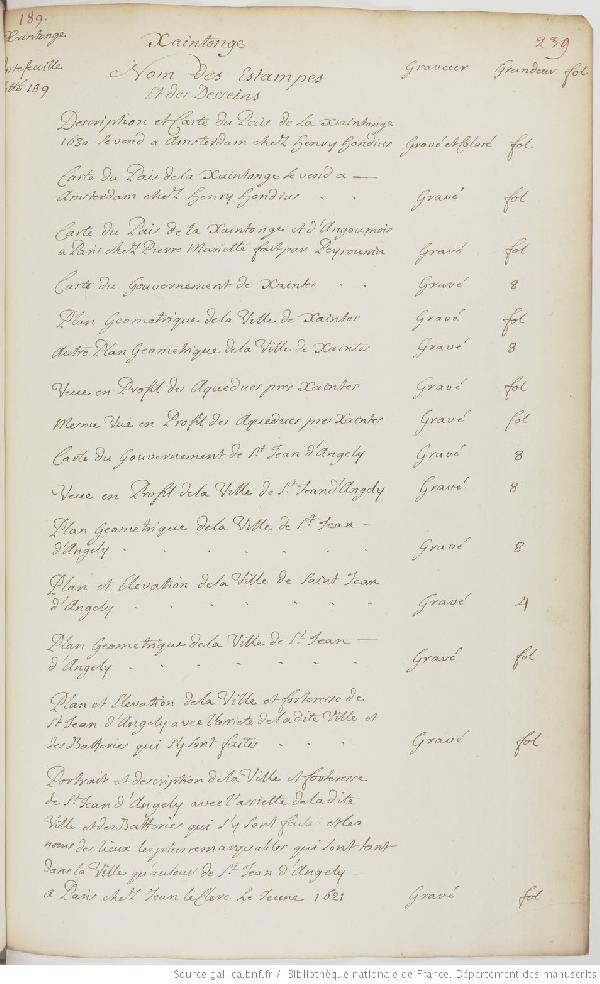 189.
Xaintonge
Xaintonge
239
portefeuille
189
Nom Des Estampes
Et des Desseins
Graveur Grandeur fol
Description et Carte du Païs de la Xaintonge
1630 se vend a Amsterdam chez Henry Hondius Gravé et Coloré fol.
Carte du Païs de la Xaintonge se vend a —
Amsterdam chez Henry Hondius . . Gravé fol
Carte du Païs de la Xaintonge et d'Angoumois
a Paris chez Pierre Mariette fait par Peyrounin Gravé fol
Carte du Gouvernement de Xaintes . . Gravé 8
Plan Geometrique de la Ville de Xaintes Gravé fol
Autre Plan Geometrique de la Ville de Xaintes Gravé 8
Veue en Profil des Aqueducs pres Xaintes Gravé fol
Mesme Vüe en Profil des Aqueducs pres Xaintes Gravé fol
Carte du Gouvernement de St Jean d'Angely Gravé 8
Veue en Profil de la Ville de St Jean d'Angely Gravé 8
Plan Geometrique de la Ville de St Jean —
d'Angely . . . . . . . Gravé 8
Plan et Elevation de la Ville de Saint Jean
d'Angely . . . . . . . Gravé 4
Plan Geometrique de la Ville de St Jean —
d'Angely . . . . . . . Gravé fol
Plan et Elevation de la Ville et forteresse de
St Jean d'Angely avec l'assiete de la dite Ville et
des Batteries qui s'y sont faites . . . Gravé fol
Portrait et description de la Ville et forteresse
de St Jean d'Angely avec l'assiette de la dite
Ville et des Batteries qui s'y sont faites et les
noms des lieux les plus remarquables qui sont tant
dans la Ville qu'autour de St Jean d'Angely —
a Paris chez Jean le Clerc le Jeune 1621 Gravé fol
Source gallica.bnf.fr / Bibliothèque nationale de France. Département des manuscrits